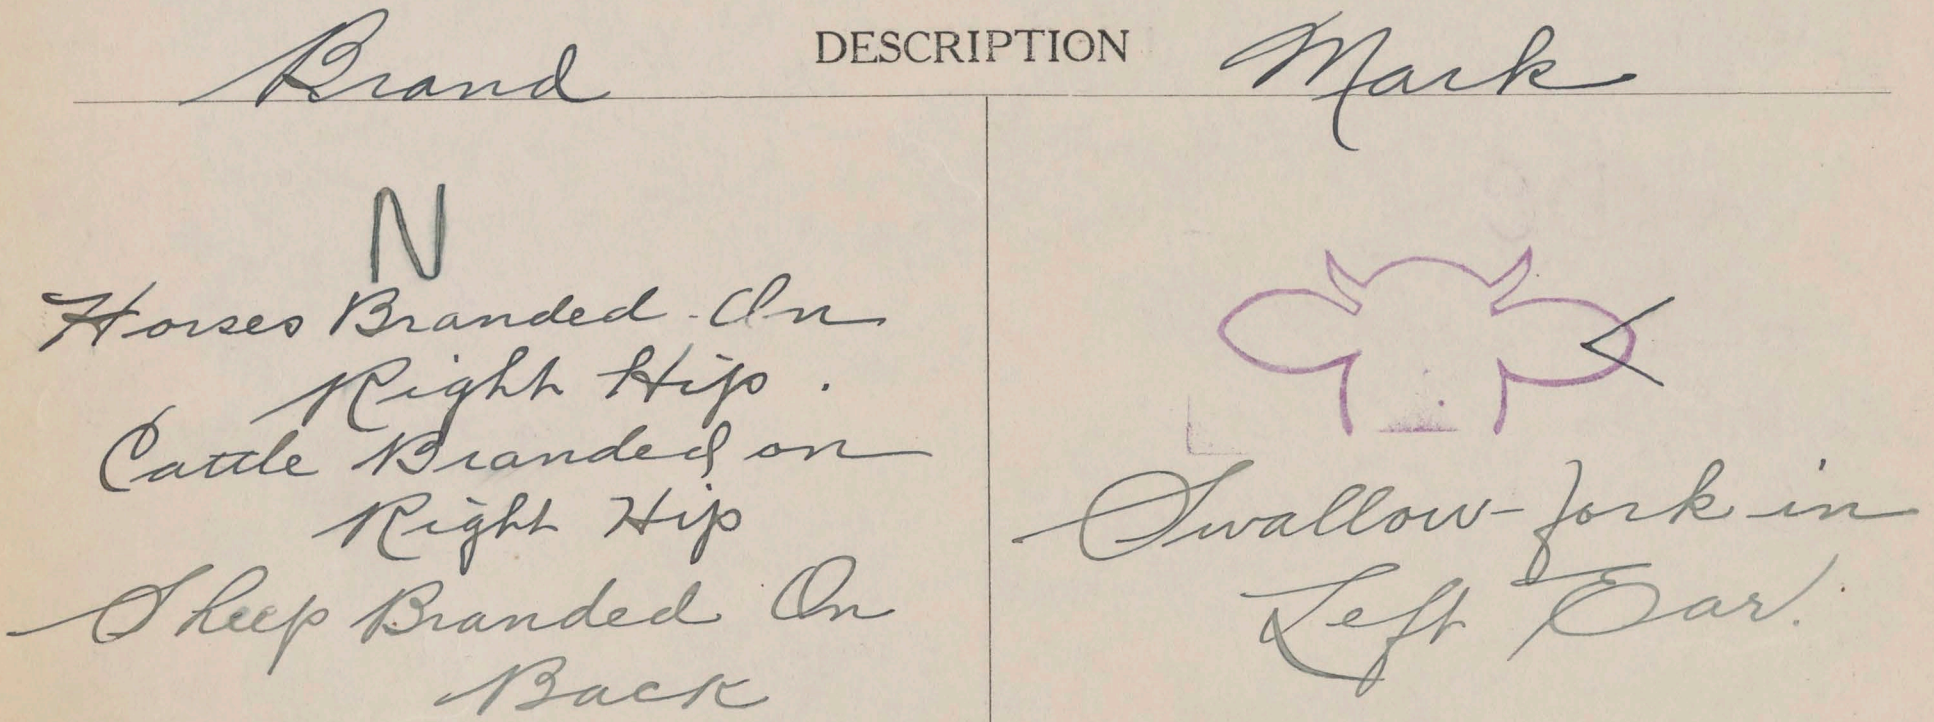 Brand DESCRIPTION Mark
N
Horses Branded On
Right Hip.
Cattle Branded on
Right Hip
Sheep Branded On
Back
Swallow-fork in
Left Ear.